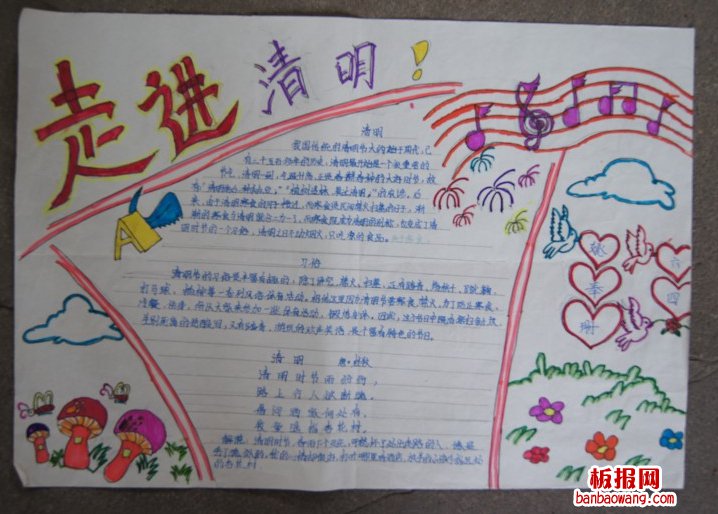 走进清明!
清明
我国传统的清明节大约始于周代,已
有二千五百多年的历史。清明最开始是一个很重要的
节气,清明一到,气温升高,正是春耕春种的大好时节,故
有“清明前后,种瓜点豆”。“植树造林,莫过清明”的农谚。后
来,由于清明与寒食的日子接近,而寒食是民间禁火扫墓的日子,渐
渐的寒食与清明就合二为一了,而寒食既成为清明的别称,也变成了清
明时节的一个习俗,清明之日不动烟火,只吃凉的食品。
A
习俗
清明节的习俗是丰富有趣的,除了讲究禁火、扫墓,还有踏青、荡秋千、
打马球、插柳等一系列风俗体育活动。相传这是因为清明节要寒食禁火,为了防止寒食
冷餐伤身,所以大家来参加一些体育活动,锻炼身体。因此,这个节日中既有祭扫新坟
生别死离的悲酸泪,又有踏青游玩的欢声笑语,是个富有特色的节日。
清明
唐·杜牧
清明时节雨纷纷,
路上行人欲断魂。
借问酒家何处有,
牧童遥指杏花村。
六
四
板报网
banbaowang.com